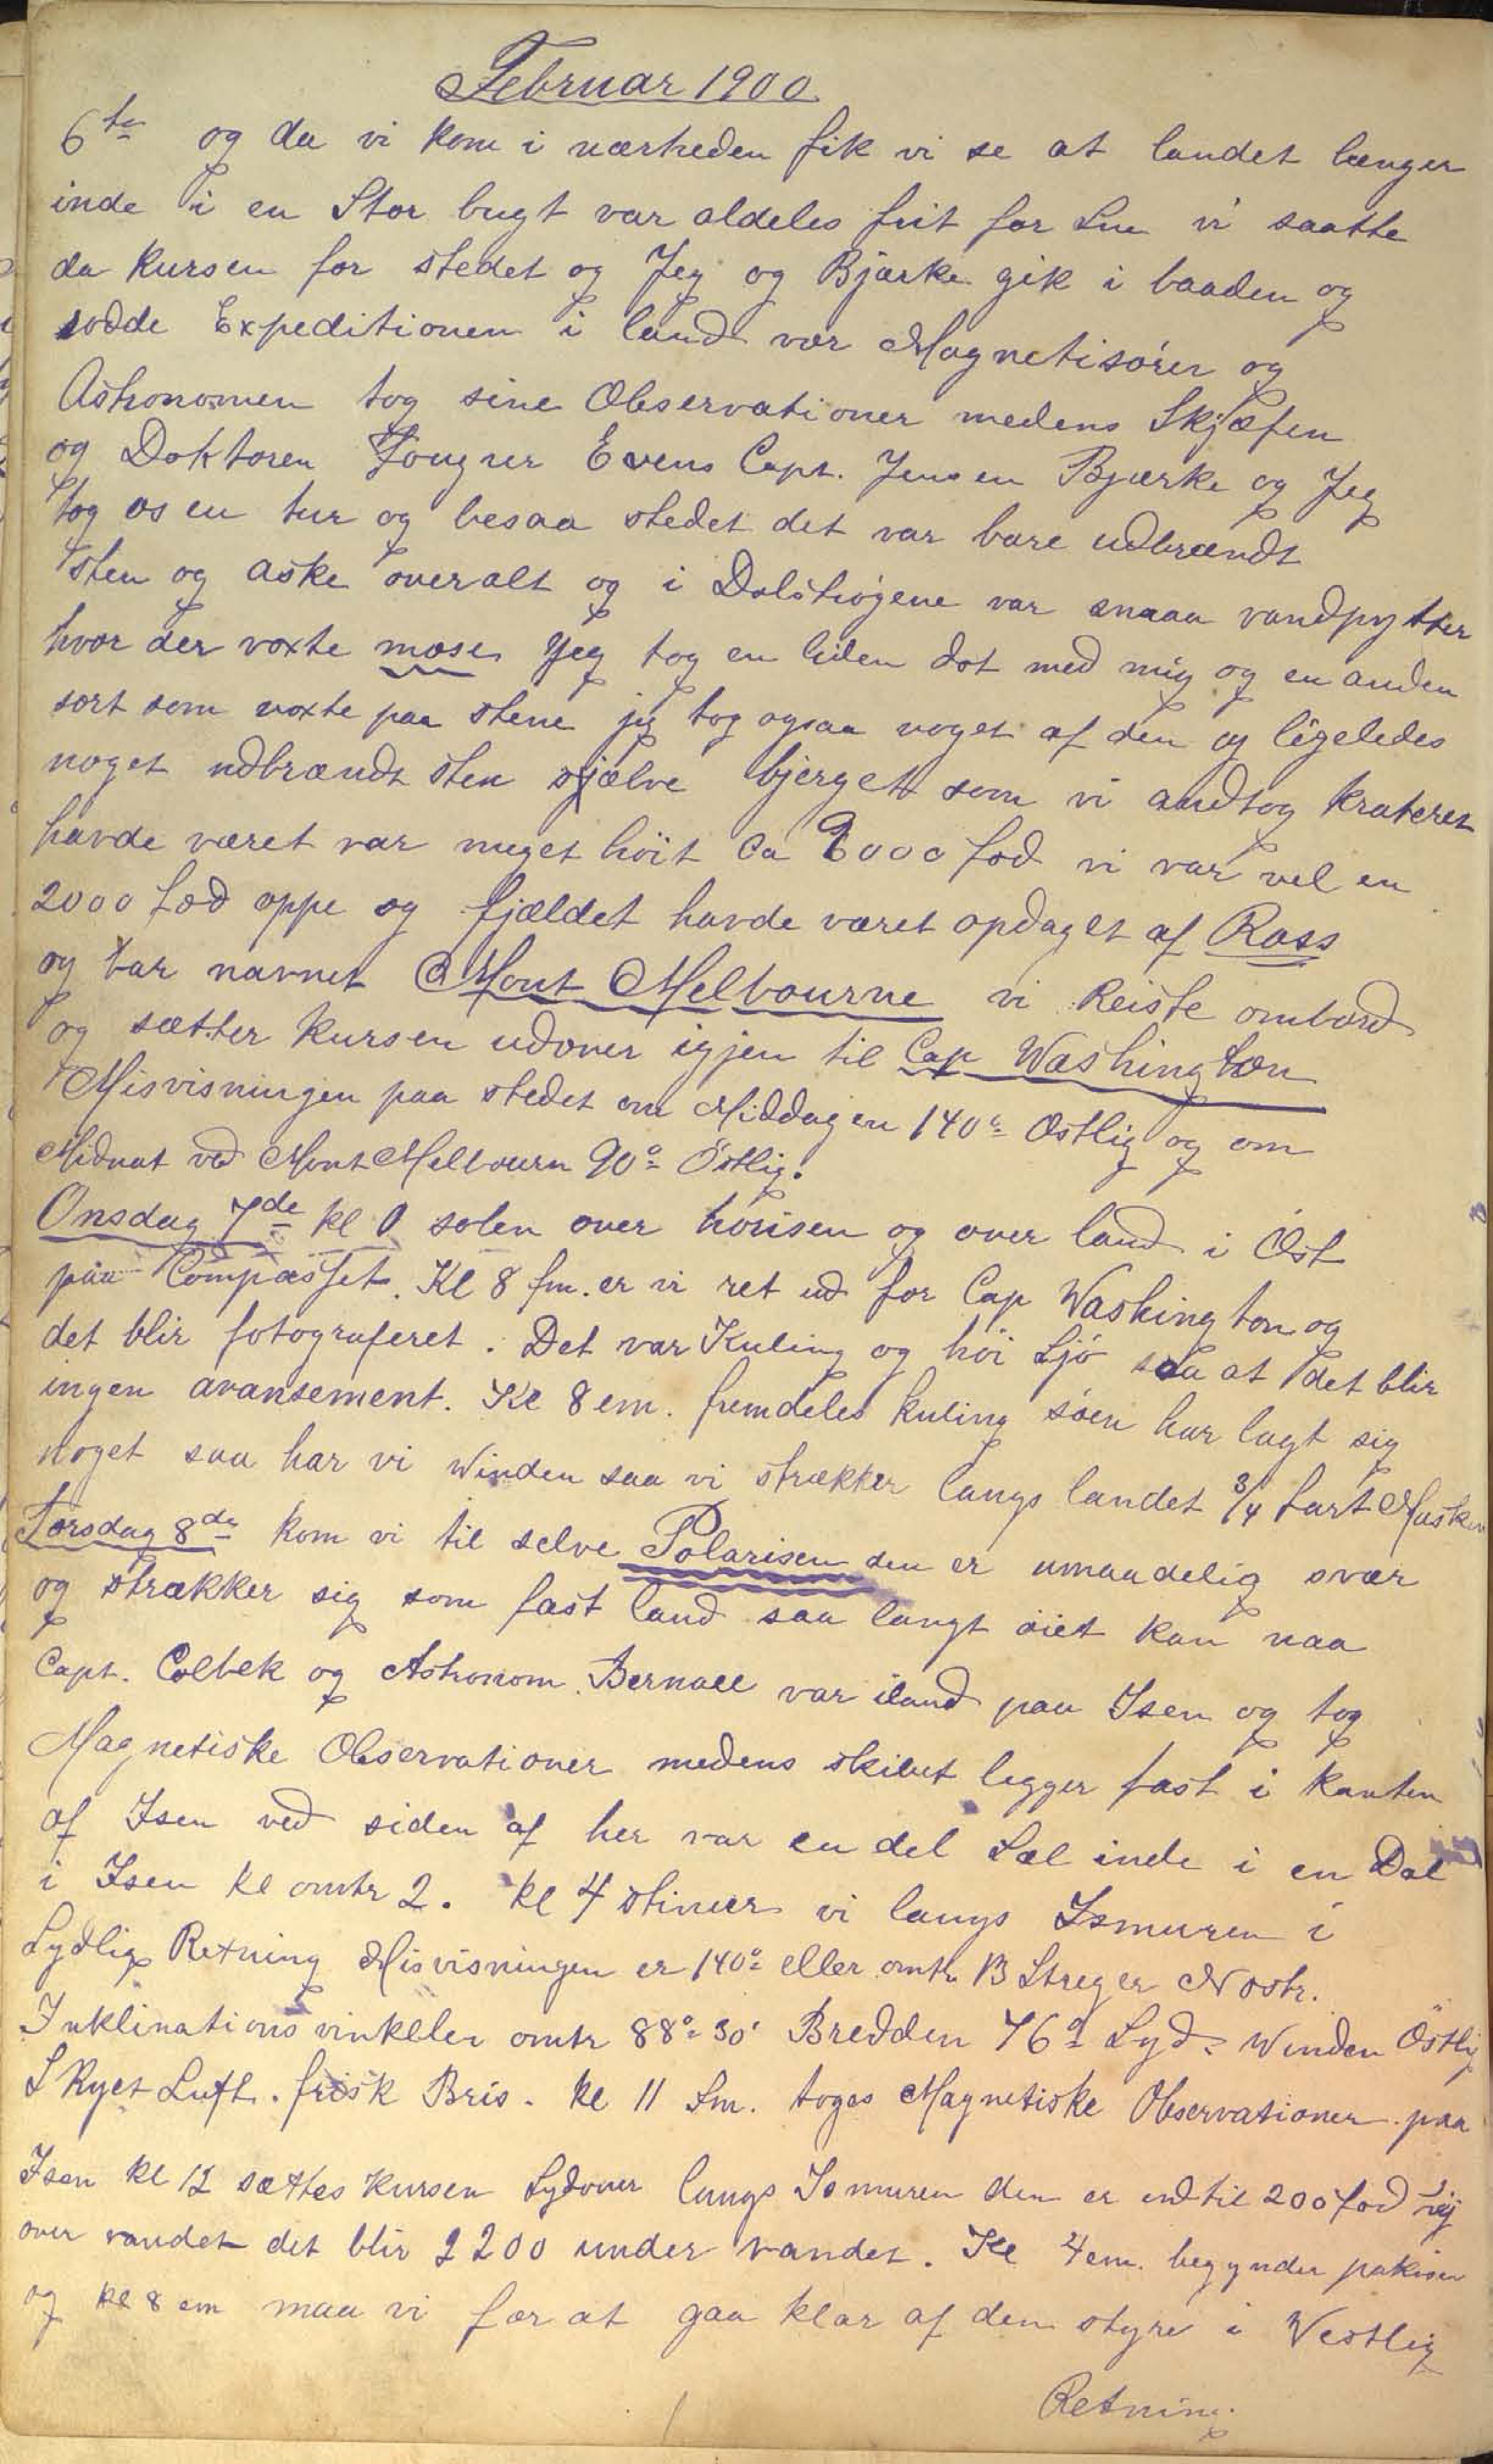 Februar 1900
6te og da vi kom i nærheden fik vi se at landet længer
inde i en Stor bugt var aldeles frit for Sne vi saatte
da kursen for stedet og Jeg og Bjarke gik i baaden og
rodde Expeditionen i land vor Magnetisörer og
Astronomen tog sine Observationer medens Skjæfen
og Doktoren Fougner Evens Capt. Jensen Bjærke og Jeg
tog os en tur og besaa stedet det var bare udbrændt
sten og aske overalt og i Dalströgene var smaa vandpytter
hvor der voxte mose Jeg tog en liden dot med mig og en anden
sort som voxte paa stene jeg tog ogsaa noget af den og ligeledes
noget udbrændt sten sjælve bjerget som vi andtog krateret
havde været var meget höit Ca 9000 fod vi var vel en
2000 fod oppe og fjældet havde været opdaget af Ross
og bar navnet Mont Melbourne vi Reiste ombord
og sætter kursen udover igjen til Cap Washington
Misvisningen paa stedet om Middagen 140° Ostlig og om
Midnat ved Mont Melbourn 90° Östlig.
Onsdag 7de kl 0 solen over horisen og over land i Øst
paa Compasset. Kl 8 fm. er vi ret ud for Cap Washington og
det blir fotograferet. Det var Kuling og höi Sjö saa at det blir
ingen avansement. Kl 8 em. fremdeles kuling söen har lagt sig
noget saa har vi Winden saa vi strækker langs landet 3/4 fart Maskin
Torsdag 8de kom vi til selve Polarisen den er umaadelig svær
og strækker sig som fast land saa langt öiet kan naa
Capt. Colbek og Astronom. Bernall var iland paa Isen og tog
Magnetiske Observationer medens skibet legger fast i kanten
af Isen ved siden af her var en del Sæl inde i en Dal
i Isen kl omtr 2. kl 4 stimer vi langs Ismuren i
Sydlig Retning Misvisningen er 140° eller omtr 13 Streger N ostr.
Inklinations vinkelen omtr 88° 30' Bredden 76° Syd. Winden Östlig
Skyet Luft. frisk Bris. kl 11 fm. toges Magnetiske Observationer paa
Isen kl 12 sættes kursen Sydover langs Ismuren den er indtil 200 fod höj
over vandet det blir 2200 under vandet. Kl 4 em. begynder pakisen
og kl 8 em maa vi for at gaa klar af den styre i Vestlig
Retning.